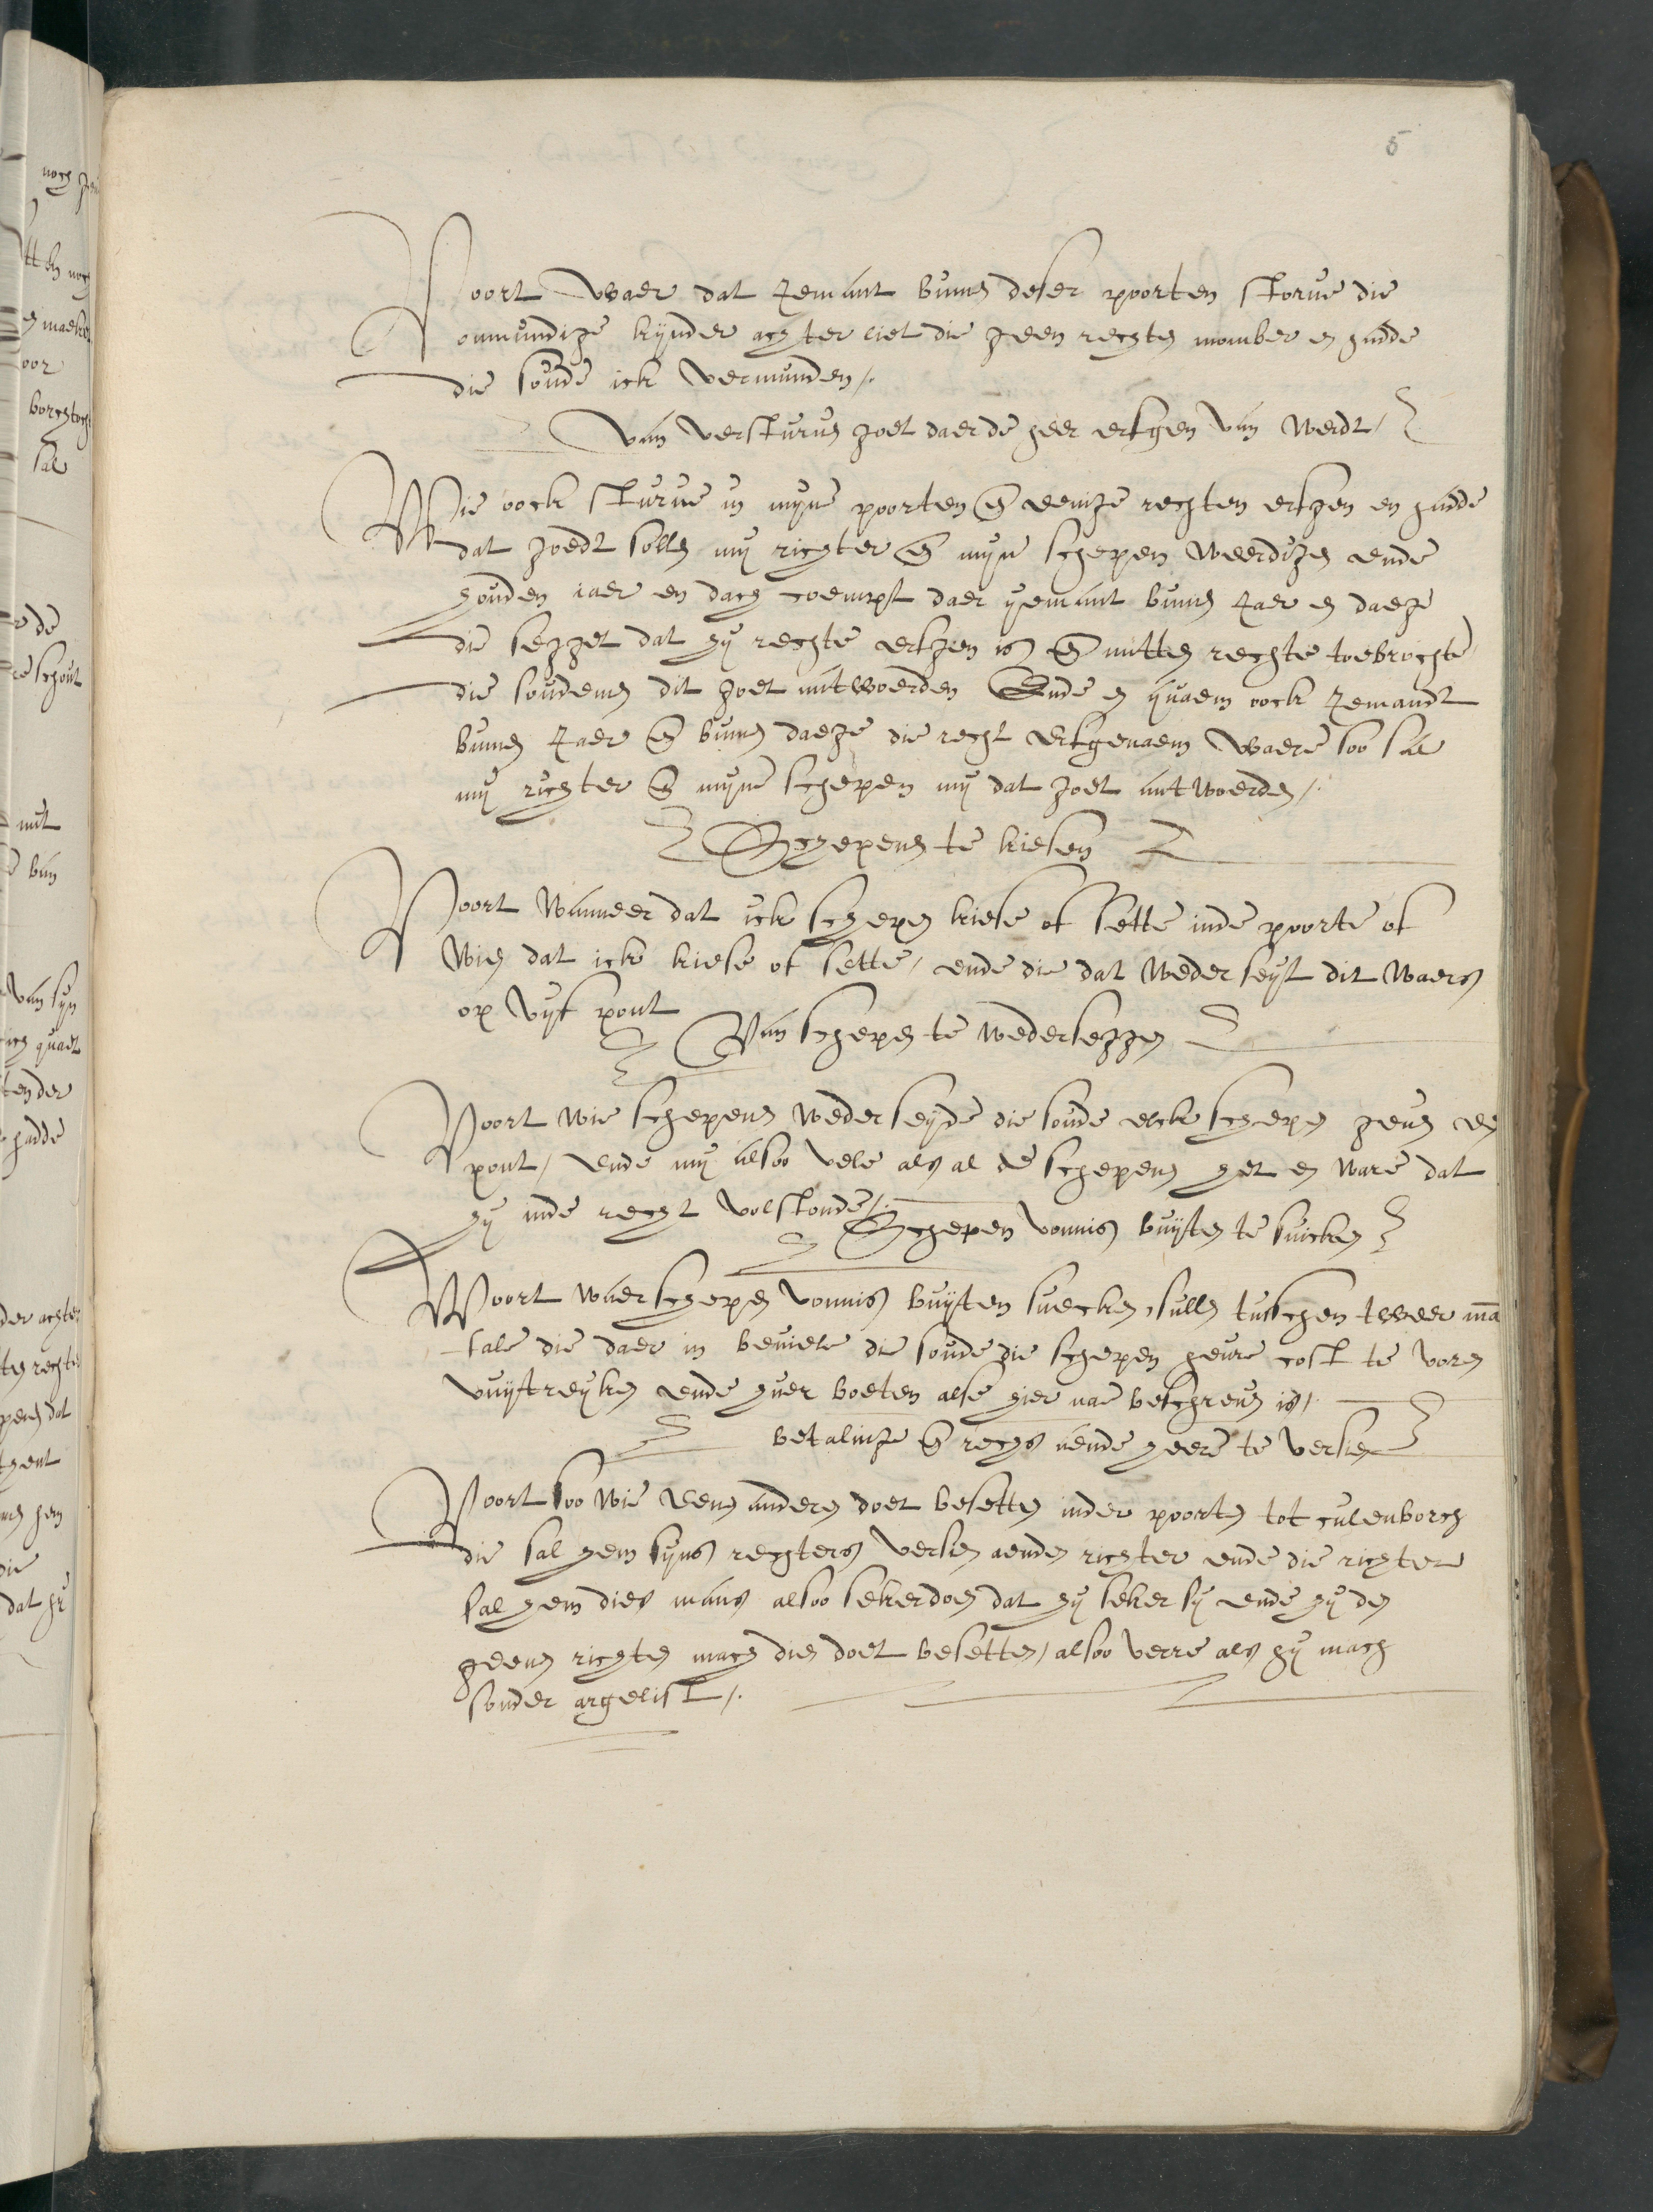 5
Voort waer dat Jemant binnen deser poorten storve die
onmundige kijnder achter liet die geen rechten momber en hadde
die soude ick vermunden /.
Van versturven goet daer de heer erfgen van werdt /
Wie oock sturve in mijne poorten en eenige rechten erfgen en hadde
dat goedt sollen mij richter en mijn schepen weerdigen ende
houden iaer en dach coempt daer yemant binnen Jaer en daege
die segget dat hij rechte erfgen is en mitten rechte toebrochte
die soudemen dit goet antwoerden Ende en quaem oock Jemandt
binnen Jaer en binnen daege die recht erfgenaem waere soo sal
mij richter en mijne schepen mij dat goet antwoerden /.
Schepens te kiesen
Voort wanneer dat ick schepen kiese of sette inde poorte of
wien dat ick kiese of sette / ende die dat weder seyt dit waers
op vijf pont
Van schepen te wederseggen
Voort wie schepens wederseyde die soude elck schepen geven een
pont / ende mij alsoo vele als al de schepens het en ware dat
hij inde recht volstonde /.
Schepen vonnis buijten te suicken
Voort waer schepen vonnis buijten suecken sullen tusschen tweer ma
tale die daer in beviele die soude die schepen heure cost te voren
vuijtreyken ende huer boeten alse hier nae beschreven is /.
betalinge en rechs aende heere te versien
Voort soo wie eens anders doet besetten inder poorten tot culenborch
die sal hem sijns rechters versien aenden richter ende die richter
sal hem dies mans alsoo sekerdoen dat hij seker sij ende hij den
geens richten mach dien doet besetten / alsoo verre als hij mach
sonder argelist /.